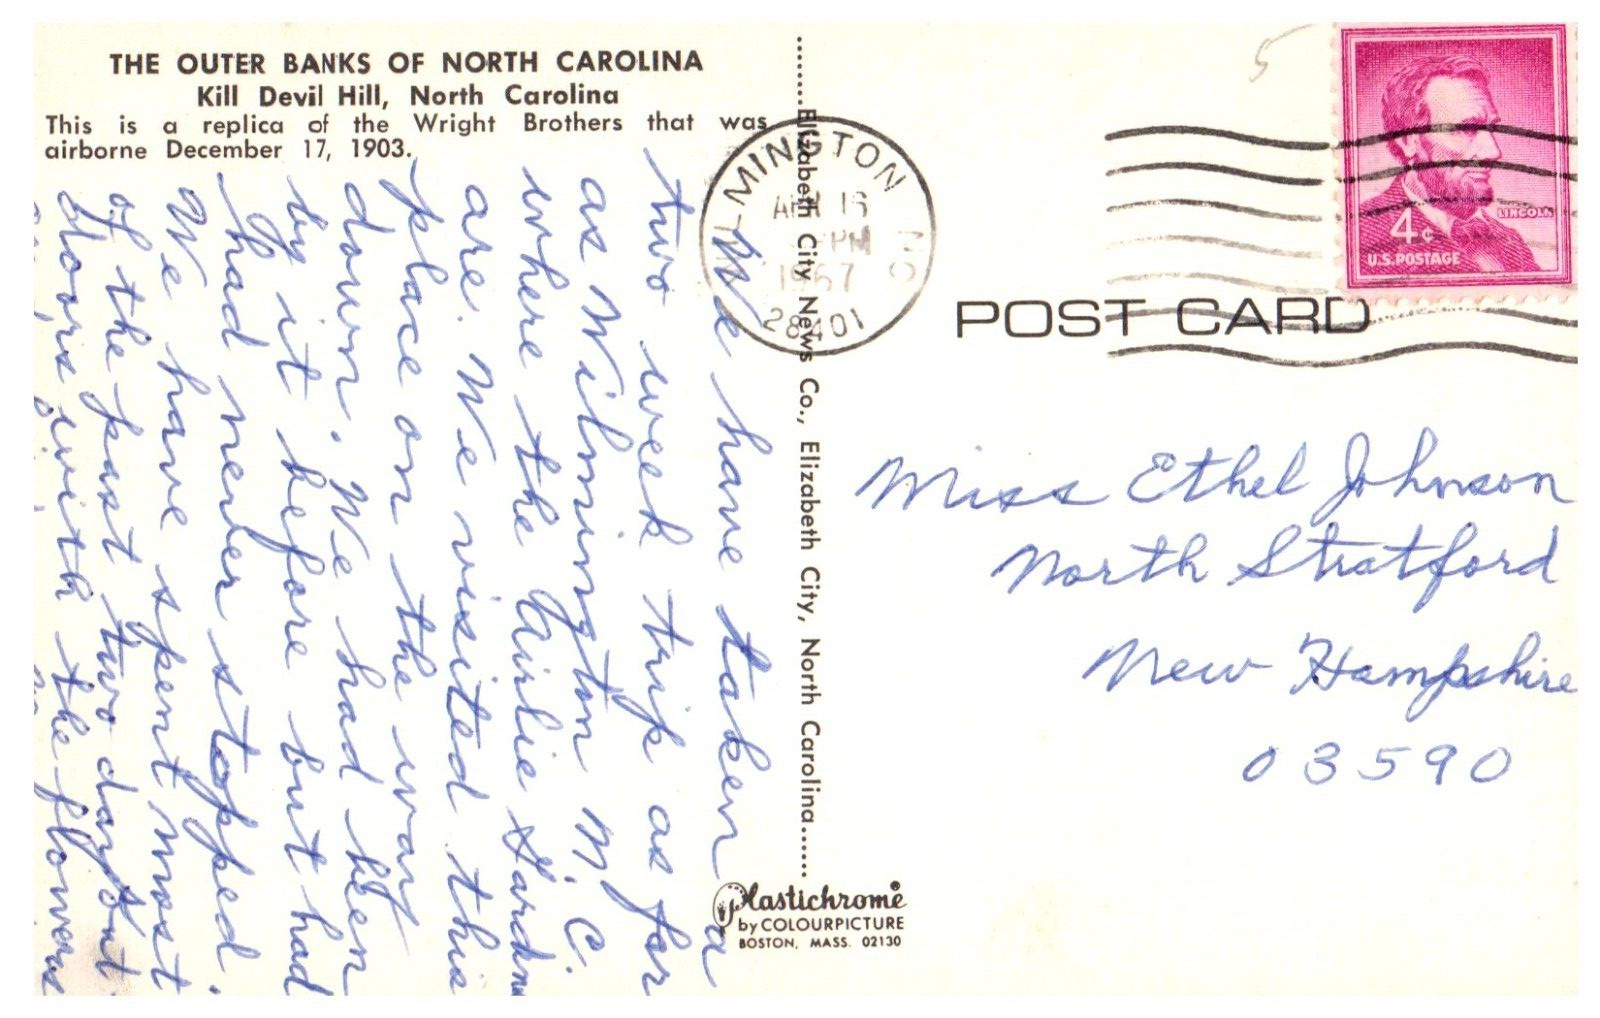 THE OUTER BANKS OF NORTH CAROLINA
Kill Devil Hill, North Carolina
This is a replica of the Wright Brothers that was
airborne December 17, 1903.
We have taken a
two week trip as far
as Wilmington N.C.
where the Airlie Gardn
are. We visited this
place on the way
down. We had been
by it before but had
had never stopped.
We have spent most
of the past two days out
doors with the flowers
Elizabeth City News Co., Elizabeth City, North Carolina
Plastichrome®
by COLOURPICTURE
BOSTON, MASS. 02130
WILMINGTON NC
16
PM
1967
28401
5
LINCOLN
4¢
U.S. POSTAGE
POST CARD
Miss Ethel Johnson
North Stratford
New Hampshire
03590